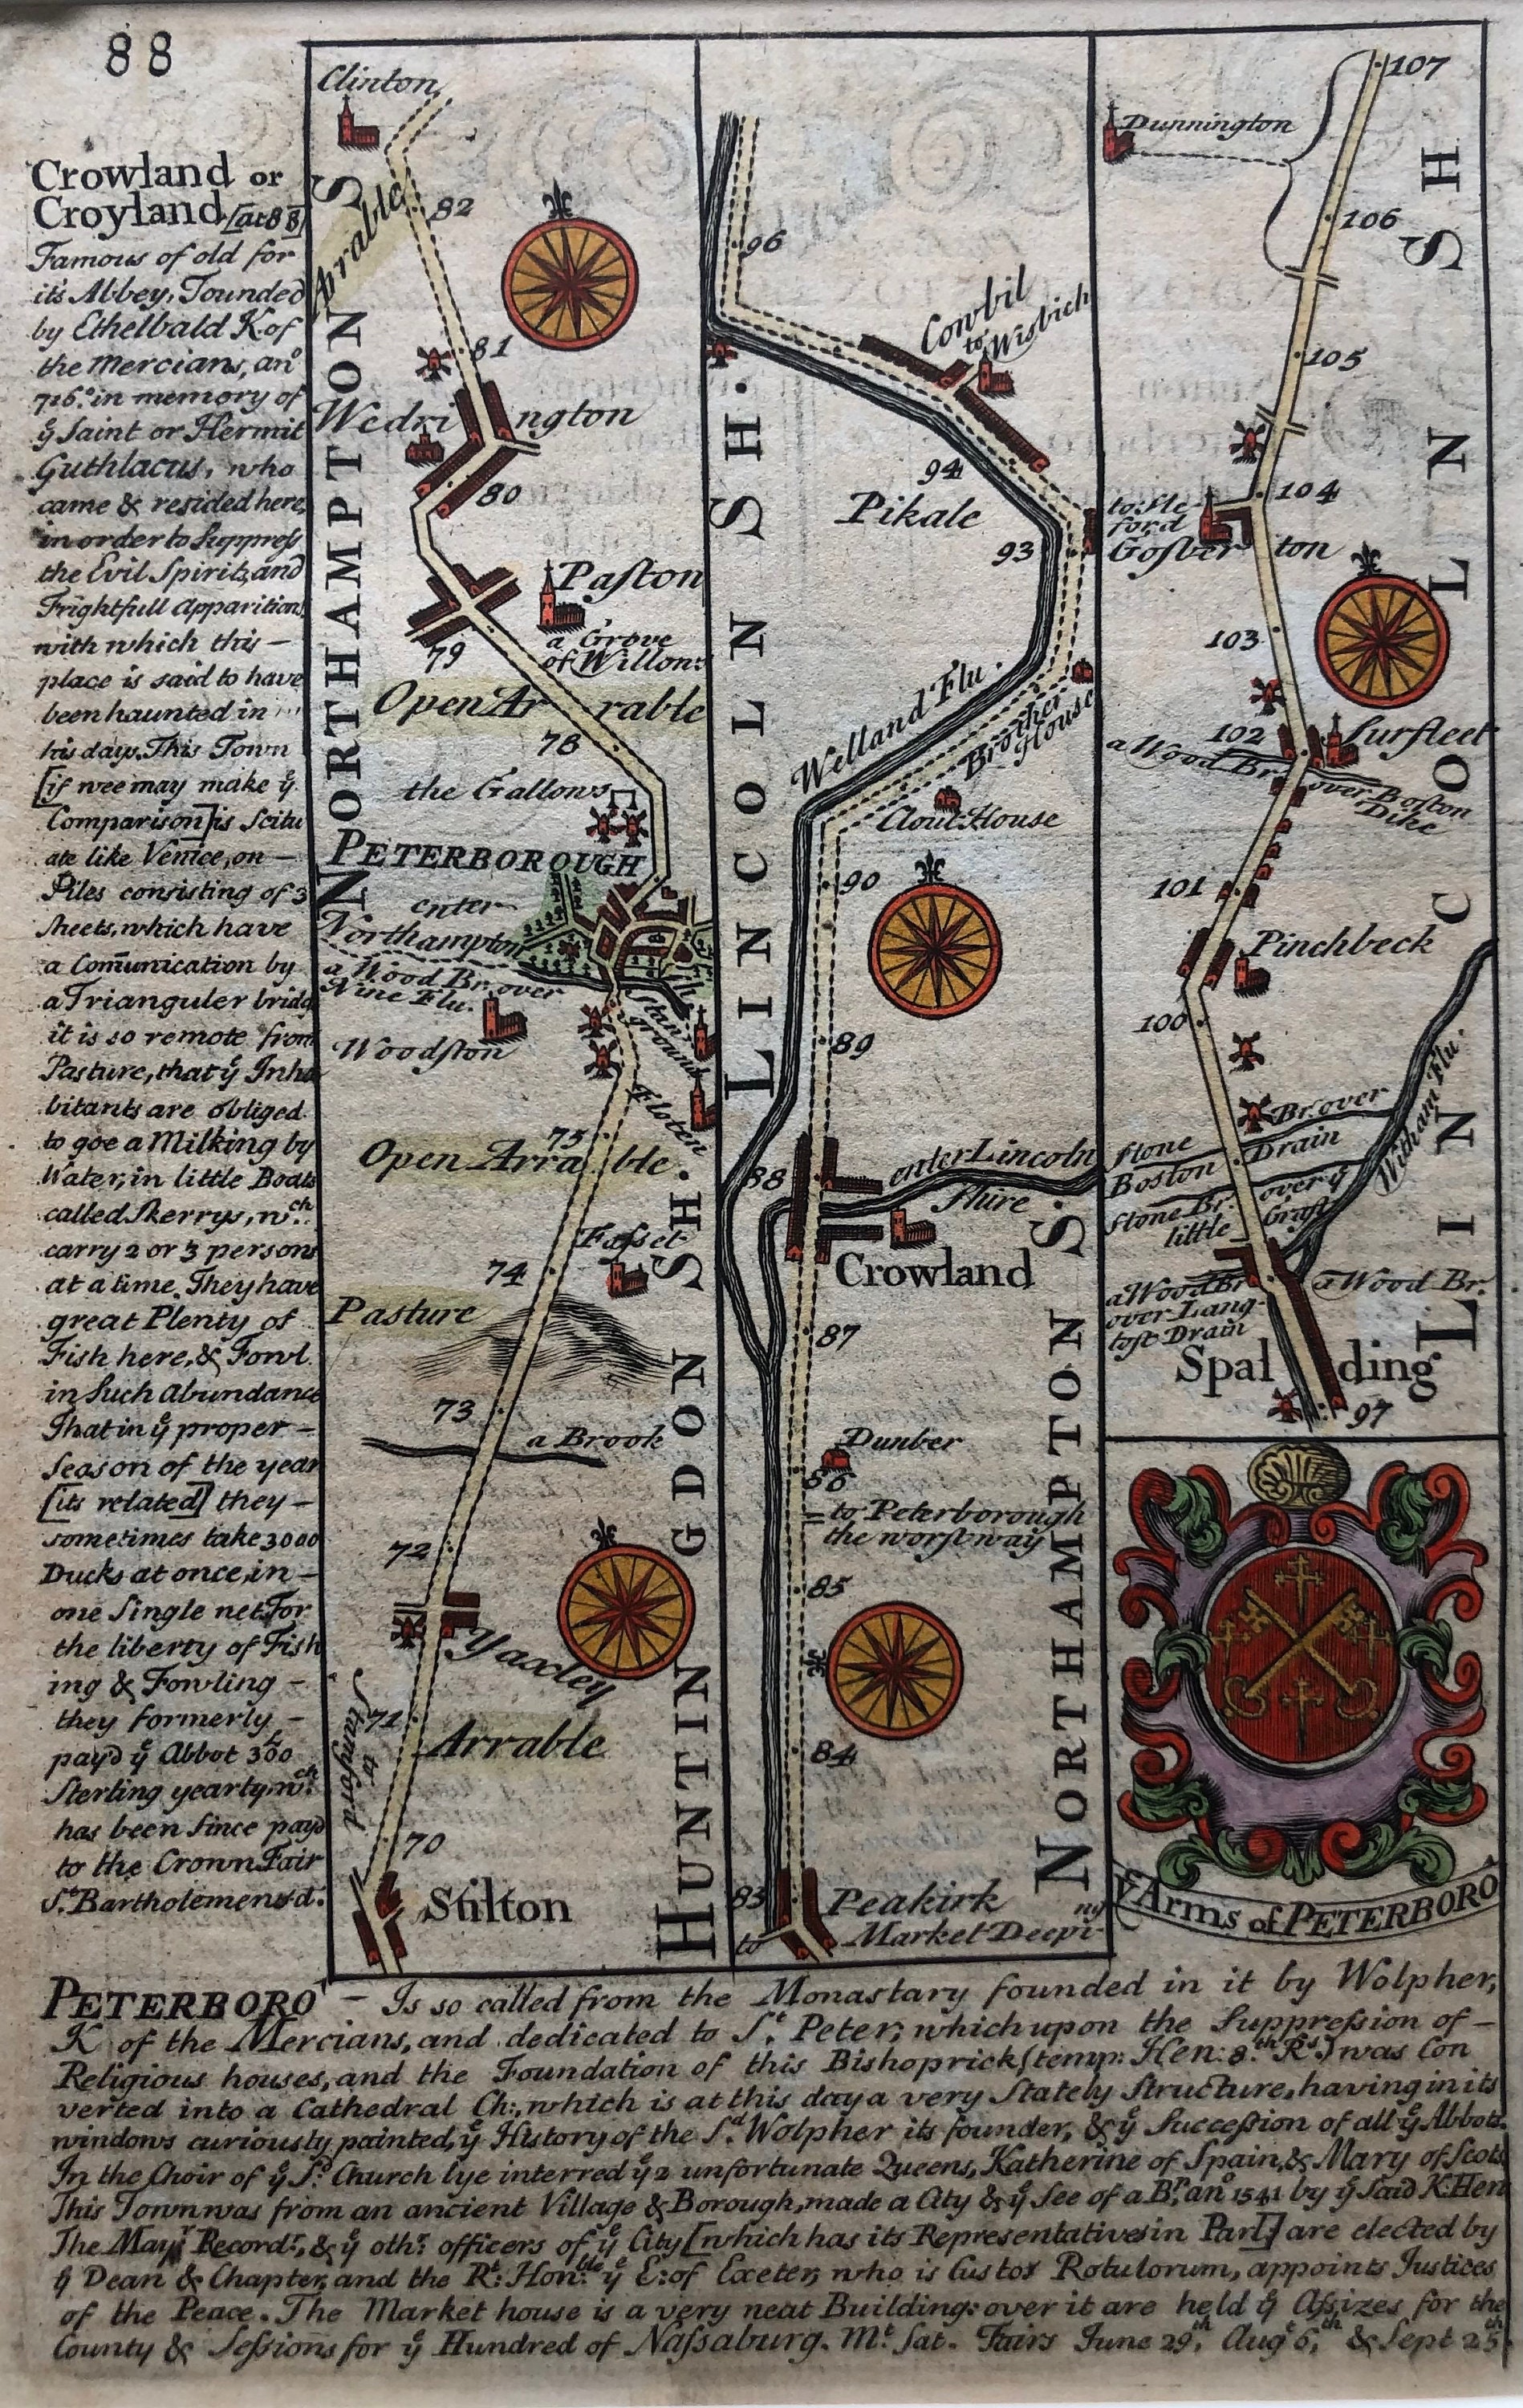 88
Crowland or
Croyland [at 88]
Famous of old for
its Abbey, Founded
by Ethelbald K. of
the Mercians, an.º
716. in memory of
yͤ Saint or Hermit
Guthlacus, who
came & resided here,
in order to Suppress
the Evil Spirits, and
Frightfull Apparitions
with which this –
place is said to have
been haunted in
his days. This Town
[if wee may make yͤ
Comparison] is Scitu
ate like Venice, on –
Piles consisting of 3
Sheets, which have
a Comunication by
a Trianguler bridg
it is so remote from
Pasture, that yͤ Inha
bitants are obliged
to goe a Milking by
Water, in little Boats
called Skerrys, wᶜʰ
carry 2 or 3 persons
at a time. They have
great Plenty of
Fish here, & Fowl
in Such Abundance
That in yͤ proper –
Season of the year
[its related] they –
sometimes take 3000
Ducks at once, in –
one Single net. For
the liberty of Fish
ing & Fowling –
they formerly –
pay'd yͤ Abbot 300
Sterling yearly, wᶜʰ
has been Since pay'd
to the Crown Fair
Sᵗ. Bartholemews d.
Clinton
Arrable
82
81
Wedri ngton
80
Paston
79
a Grove
of Willows
Open Ar rable
78
the Gallows
PETERBOROUGH
enter
Northampton
a Wood Br. over
Nine Flu.
Stan
ground
Woodston
Floten
75
Open Arra ble
Fasset
74
Pasture
73
a Brook
72
Yaxley
to Stanford
71
Arrable
70
Stilton
NORTHAMPTON S
HUNTINGDON SH.
96
Cowbil
to Wisbich
94
Pikale
93
Welland Flu.
Brother
House
Clout House
90
89
88
enter Lincoln
Shire
Crowland
87
Dunber
86
to Peterborough
the worst way
85
84
83
Peakirk
to Market Deepi
ng
LINCOLN SH.
NORTHAMPTON S.
107
Dunnington
106
105
104
to Sle
ford
Gosber ton
103
102
Surfleet
a Wood Br. over Boston
Dike
101
Pinchbeck
100
Stone Br. over
Boston Drain
Stone Br. over yͤ
little Graft
Witham Flu.
a Wood Br.
over Lang
toft Drain
a Wood Br.
Spal ding
97
LINCOLN SH
Yͤ Arms of PETERBORO
PETERBORO' – Is so called from the Monastary founded in it by Wolpher,
K of the Mercians, and dedicated to Sᵗ. Peter; which upon the Suppression of –
Religious houses, and the Foundation of this Bishoprick (temp: Hen: 8.ᵗʰ Rˢ) was Con
verted into a Cathedral Ch:, which is at this day a very Stately Structure, having in its
windows curiously painted, yͤ History of the Sᵈ. Wolpher its founder, & yͤ Succession of all yͤ Abbots.
In the Choir of yͤ Sᵈ. Church lye interred yͤ 2 unfortunate Queens, Katherine of Spain, & Mary of Scots
This Town was from an ancient Village & Borough, made a City & yͤ See of a Bᵖ. anº 1541 by yͤ Said K. Hen
The Mayʳ. Recordʳ., & yͤ othʳ. officers of yͤ City [which has its Representatives in Parl:] are elected by
yͤ Dean & Chapter, and the Rᵗ. Honᵇˡᵉ yͤ E: of Exeter, who is Custos Rotulorum, appoints Justices
of the Peace. The Market house is a very neat Building: over it are held yͤ Assizes for the
County & Sessions for yͤ Hundred of Nassaburg. Mᵗ. Sat. Fairs June 29,ᵗʰ Augᵗ 6,ᵗʰ & Sept 25ᵗʰ.